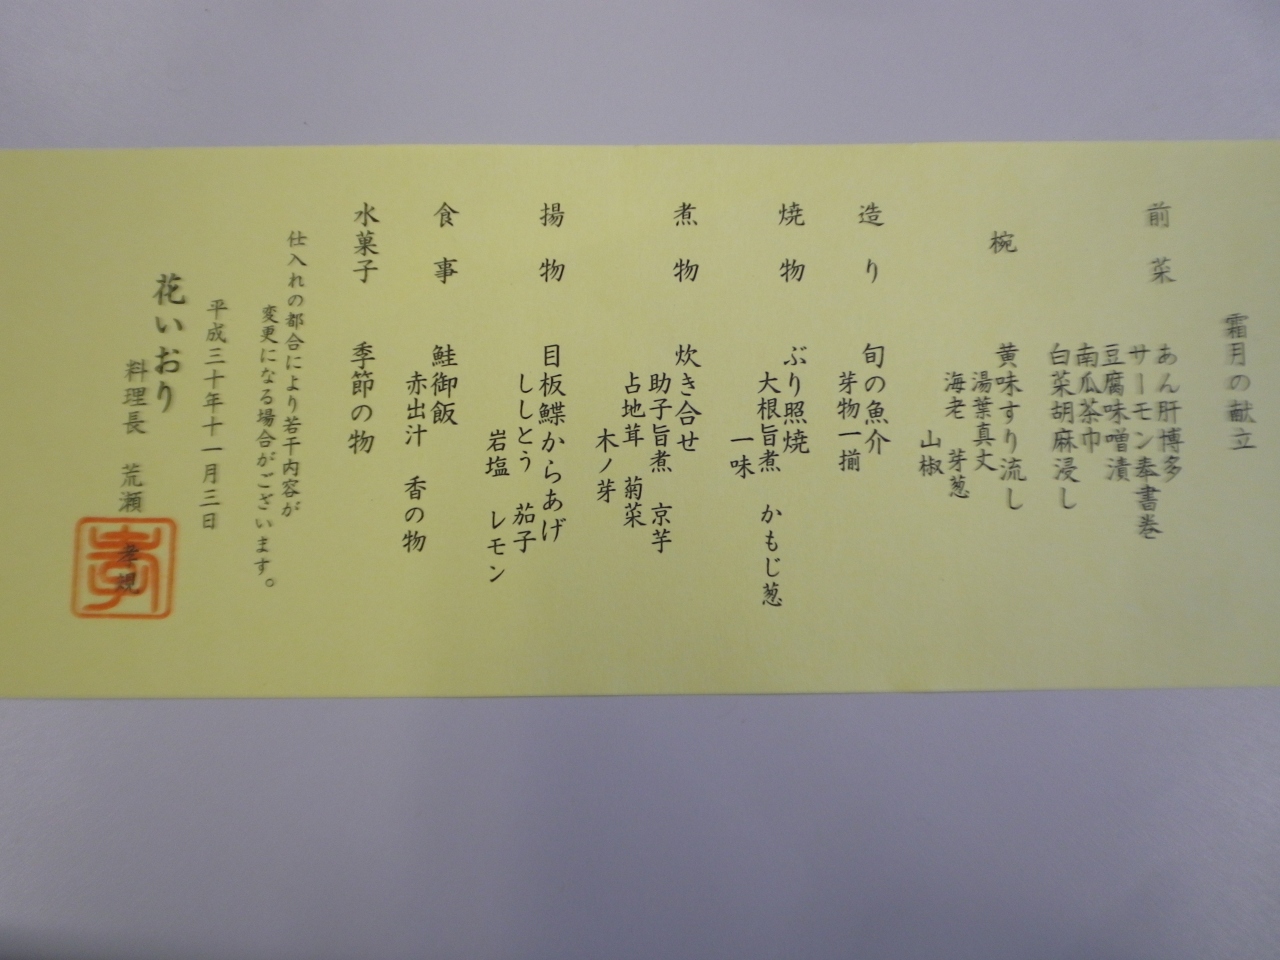 霜月の献立
前菜 あん肝博多
サーモン奉書巻
豆腐味噌漬
南瓜茶巾
白菜胡麻浸し
椀 黄味すり流し
湯葉真丈
海老 芽葱
山椒
造り 旬の魚介
芽物一揃
焼物 ぶり照焼
大根旨煮 かもじ葱
一味
煮物 炊き合せ
助子旨煮 京芋
占地茸 菊菜
木ノ芽
揚物 目板鰈からあげ
ししとう 茄子
岩塩 レモン
食事 鮭御飯
赤出汁 香の物
水菓子 季節の物
仕入れの都合により若干内容が
変更になる場合がございます。
平成三十年十一月三日
花いおり
料理長 荒瀬 孝規